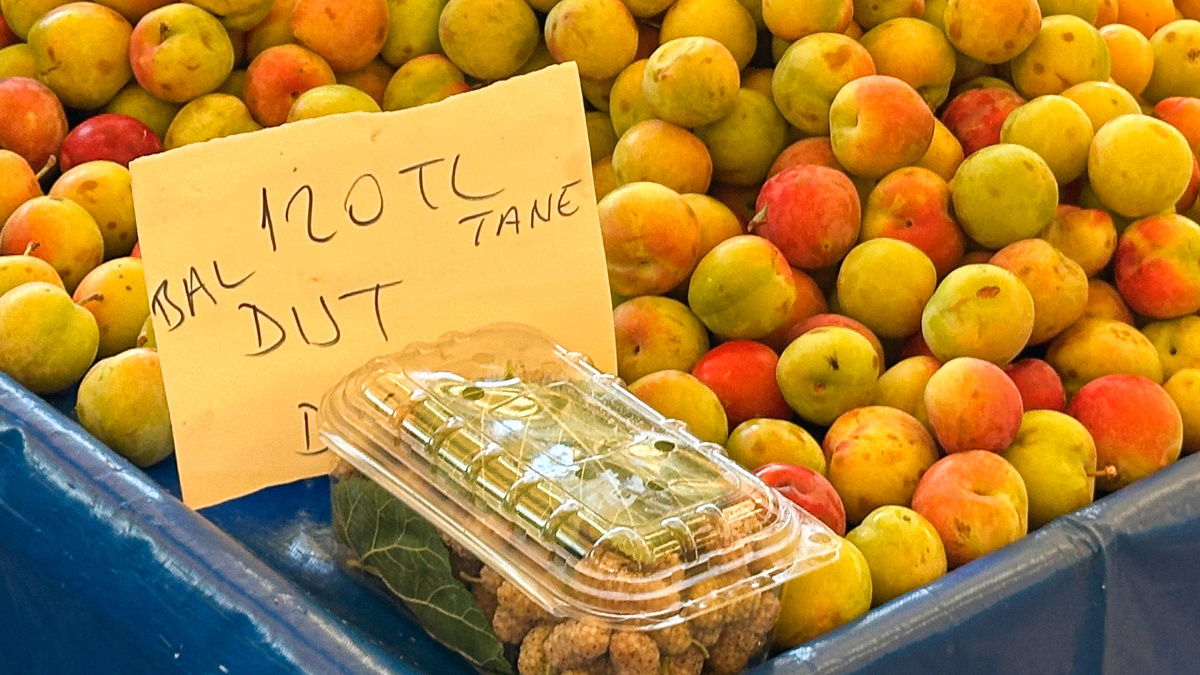 120 TL
TANE
BAL
DUT
D